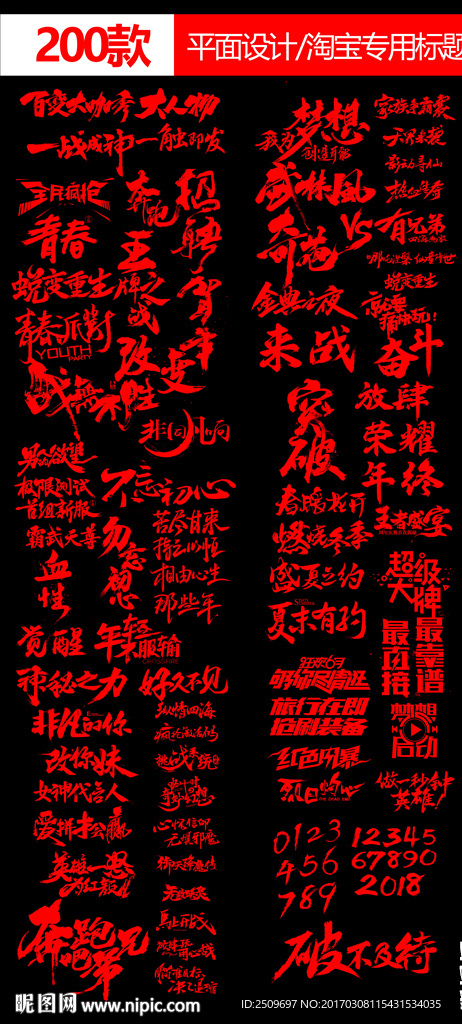 200款
平面设计/淘宝专用标题
百变大咖秀
大人物
一战成神
一触即发
全民疯抢
奔跑
招聘
青春
王牌之战
蜕变重生
贺年
青春派对
YOUTH
PARTY
改变
战无不胜
非同凡响
男人欲望
极限测试
首组新服
霸武天尊
不忘初心
勿忘
苦尽甘来
持之以恒
相由心生
那些年
血性
觉醒
年轻不服输
神秘之力
好久不见
非凡的你
纵情四海
改你妹
女神代言人
爱拼才会赢
英雄一怒为红颜
心怀信仰
无惧邪魔
奔跑吧兄弟
梦想
武林风
奇葩
VS
有兄弟
金典之夜
蜕变重生
就要
痛快玩!
来战
奋斗
突破
放肆
荣耀
年终
春暖花开
王者盛宴
燃烧冬季
盛夏之约
夏末有约
超级大牌
最直接
最靠谱
狂欢6月
够你尽情选
旅行在即
抢刷装备
梦想启动
红色风暴
烈日
做一秒钟
英雄!
0123
456
789
12345
67890
2018
破不及待
昵图网 www.nipic.com
ID:2509697 NO:20170308115431534035